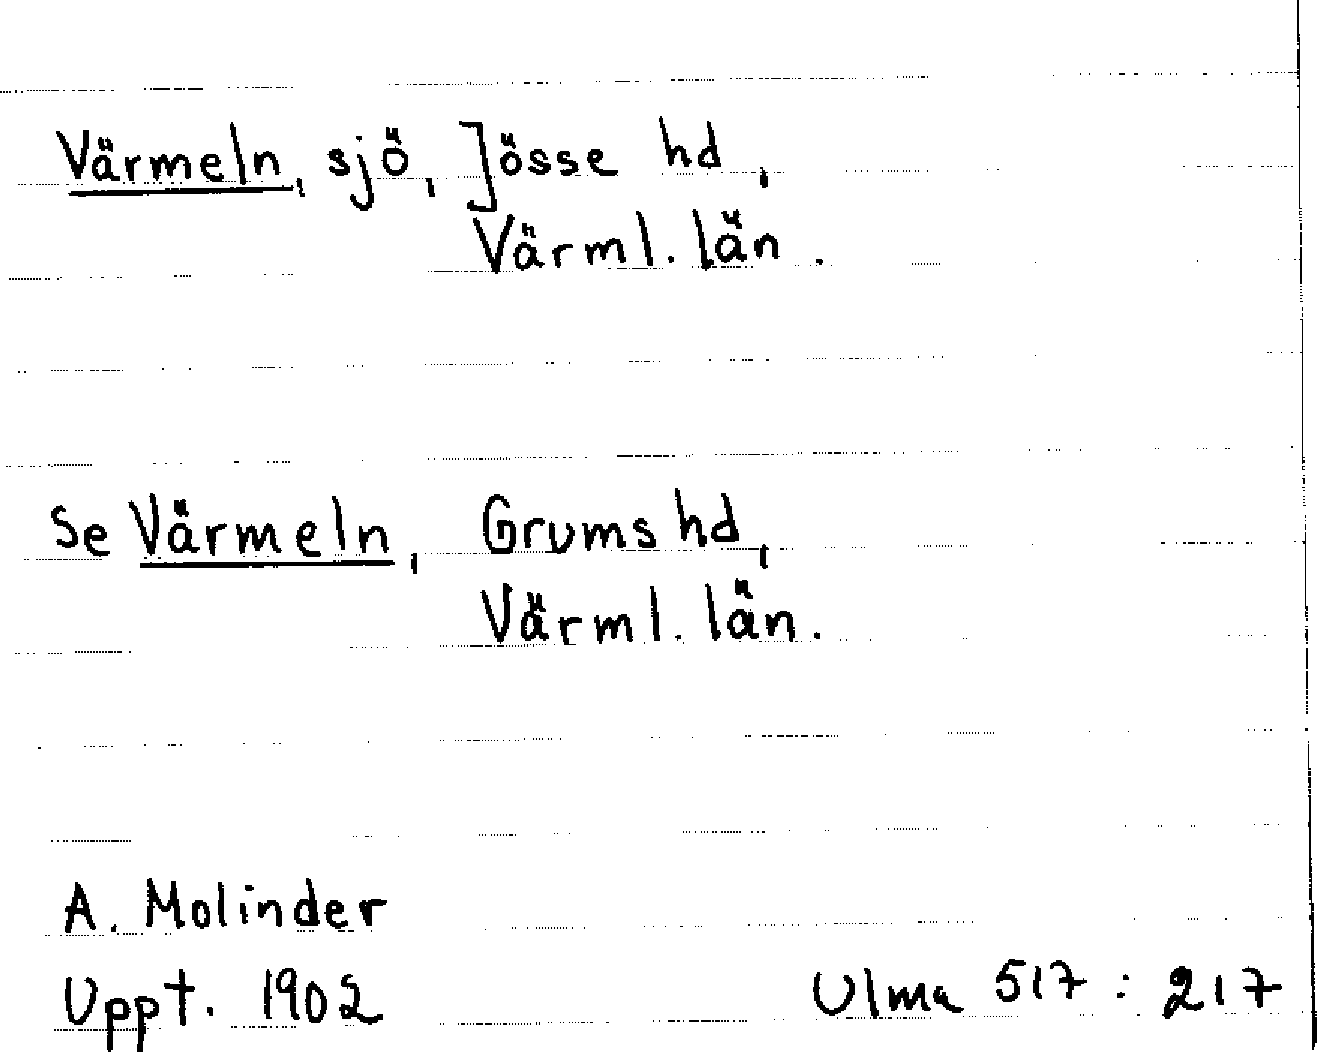 Värmeln, sjö, Jösse hd,
Värml. län.
Se Värmeln, Grums hd,
Värml. län.
A. Molinder
Uppt. 1902
Ulma 517 : 217